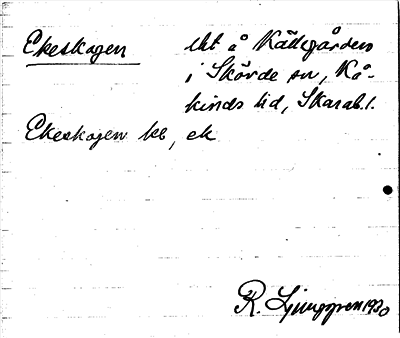 Ekeskogen   lht å Källegården
i Skövde sn, Kå-
kinds hd, Skarab. l.
Ekeskogen bb, ek
R. Ljunggren 1930